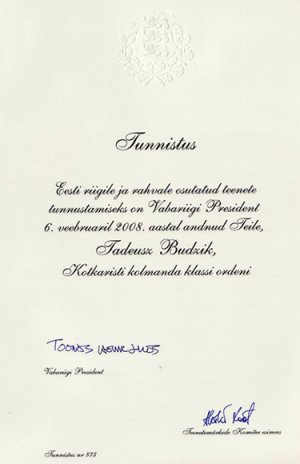 Tunnistus
Eesti riigile ja rahvale osutatud teenete
tunnustamiseks on Vabariigi President
6. veebruaril 2008. aastal andnud Teile,
Tadeusz Budzik,
Kotkaristi kolmanda klassi ordeni
Vabariigi President
Teenetemärkide Komitee esimees
Tunnistus nr 875